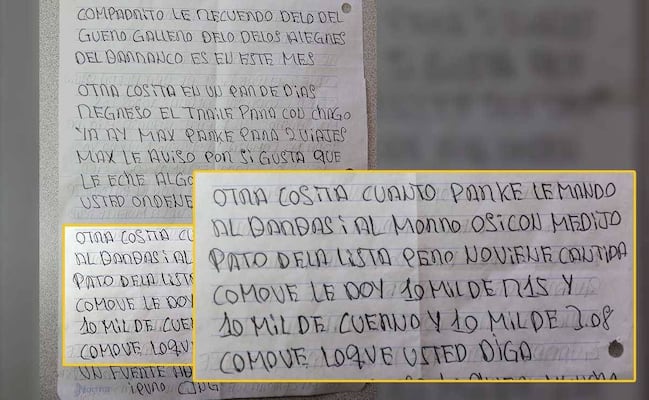 COMPADRITO LE RECUERDO DELO DEL
GUERO GALLERO DELO DELOS ALEGRES
DEL BARRANCO ES EN ESTE MES
OTRA COSITA EN UN PAR DE DIAS
REGRESO EL TRAILE PARA CON CHAGO
YA AY MAX PARKE PARA 2 VIAJES
MAX LE AVISO POR SI GUSTA QUE
LE ECHE ALGO
USTED ORDENE
OTRA COSITA CU
AL BARBAS i AL
PATO DELA LISTA
COMOVE LE DOY
10 MIL DE CUER
COMOVE LOQUE
UN FUERTE AB
PURO CJNG
OTRA COSITA CUANTO PARKE LE MANDO
AL BARBAS i AL MORRO OSICON MEDIJO
PATO DELA LISTA PERO NOVIENE CANTIDA
COMOVE LE DOY 10 MIL DE R15 Y
10 MIL DE CUERNO Y 10 MIL DE 3.08
COMOVE LOQUE USTED DIGA